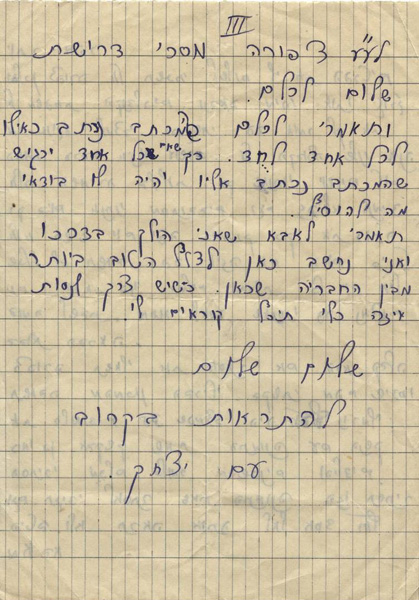 III
לע"ע צפורה מסרי דרישת
שלום לכלם.
ותאמרי לכלם שהמכתב נכתב כאילו
לכל אחד לחד. רק שאם כל אחד ירגיש
שהמכתב נכתב אליו יהיה לו בודאי
מה להוסיף.
תאמרי לאבא שאני הולך בדרכו
ואני נחשב כאן לצלף הטוב ביותר
מבין החבריה שכאן. כשיש צרך לנסות
איזה כלי תיכף קוראים לי.
שלום שלום
להתראות בקרוב
עם יצחק.